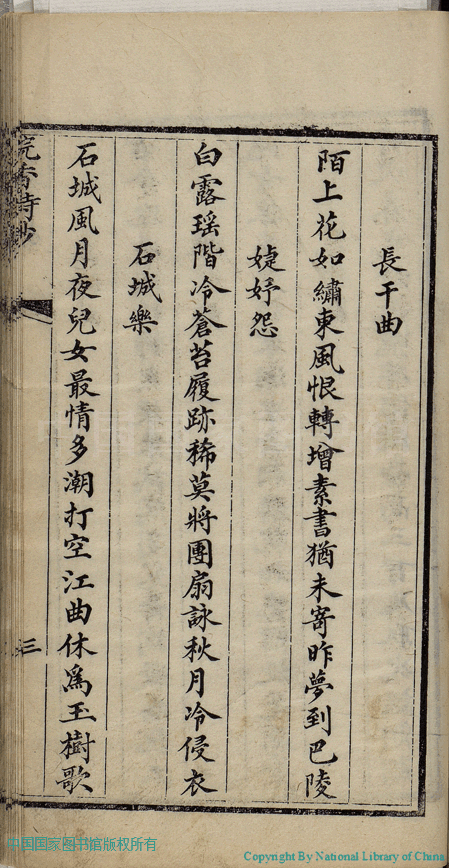 長干曲
陌上花如繡東風恨轉增素書猶未寄昨夢到巴陵
婕妤怨
白露瑶階冷蒼苔履跡稀莫將團扇詠秋月冷侵衣
石城樂
石城風月夜兒女最情多潮打空江曲休爲玉樹歌
香詩抄
三
中国国家图书馆版权所有
Copyright By National Library of China